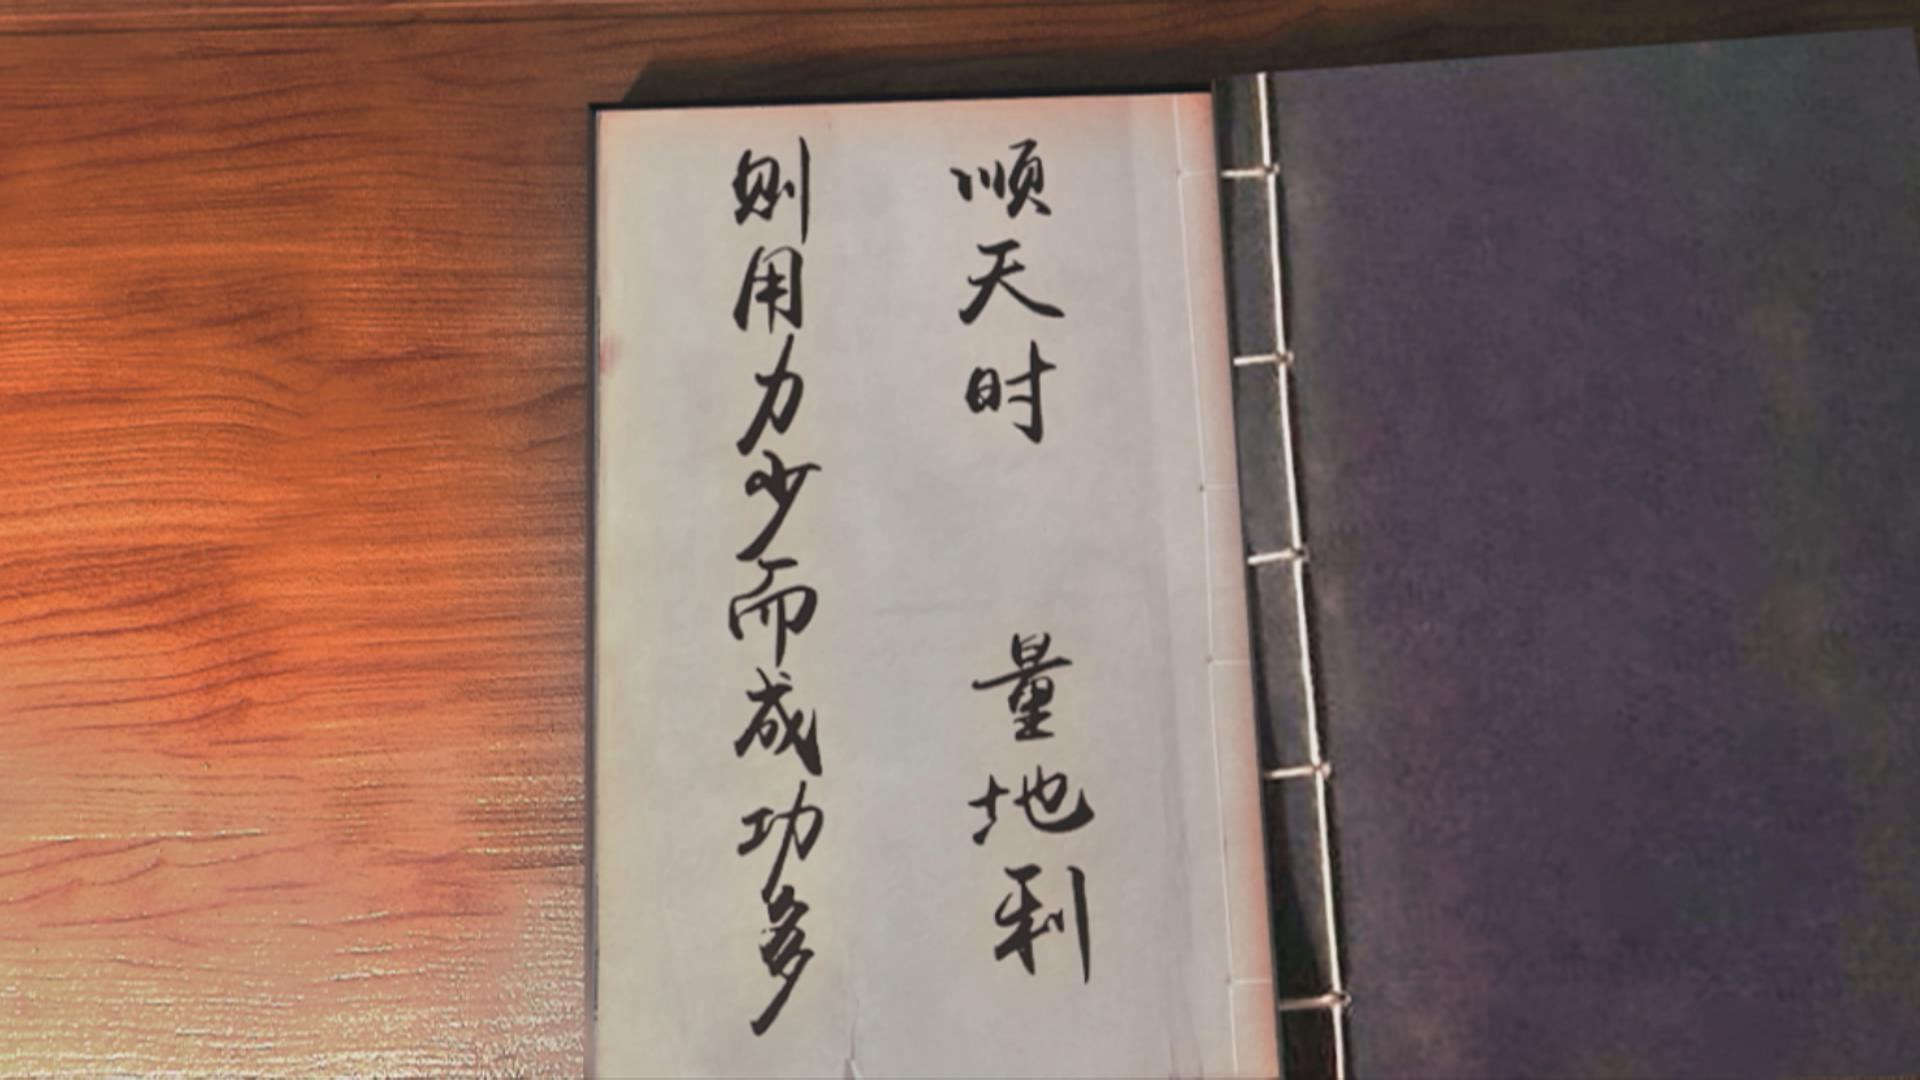 顺天时 量地利
则用力少而成功多